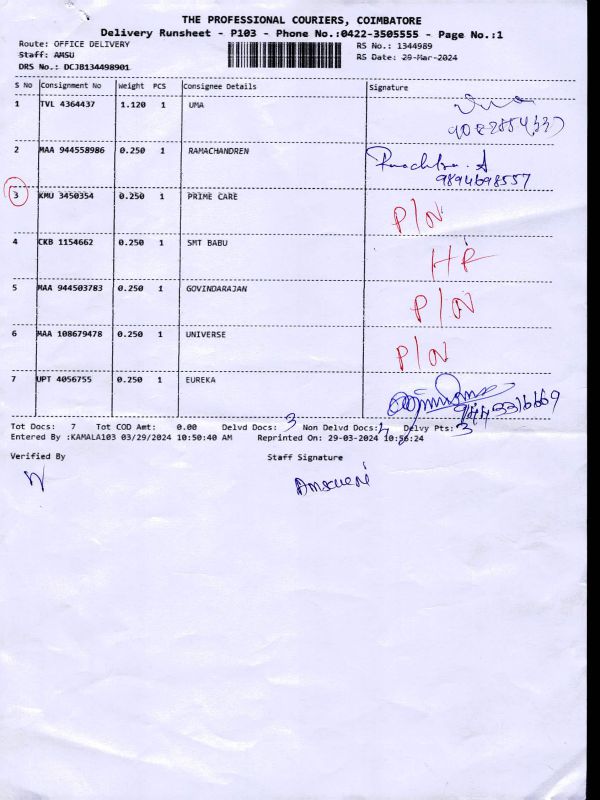 THE PROFESSIONAL COURIERS, COIMBATORE
Delivery Runsheet - P103 - Phone No.:0422-3505555 - Page No.:1
Route: OFFICE DELIVERY RS No.: 1344989
Staff: AMSU RS Date: 29-Mar-2024
DRS No.: DCJB134498901
S No Consignment No Weight PCS Consignee Details Signature
1 TVL 4364437 1.120 1 UMA
2 MAA 944558986 0.250 1 RAMACHANDREN
9894698557
3 KMU 3450354 0.250 1 PRIME CARE P/N
4 CKB 1154662 0.250 1 SMT BABU HR
5 MAA 944503783 0.250 1 GOVINDARAJAN P/N
6 MAA 108679478 0.250 1 UNIVERSE P/N
7 UPT 4056755 0.250 1 EUREKA
Tot Docs: 7 Tot COD Amt: 0.00 Delvd Docs: 3 Non Delvd Docs: 4 Delvy Pts: 3
Entered By :KAMALA103 03/29/2024 10:50:40 AM Reprinted On: 29-03-2024 10:56:24
Verified By Staff Signature